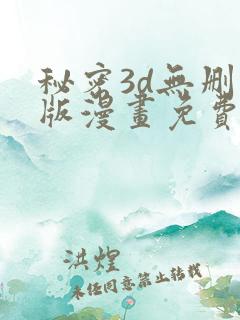 秘密3d無刪
版漫畫免費
洪煌
未任同意禁止转载